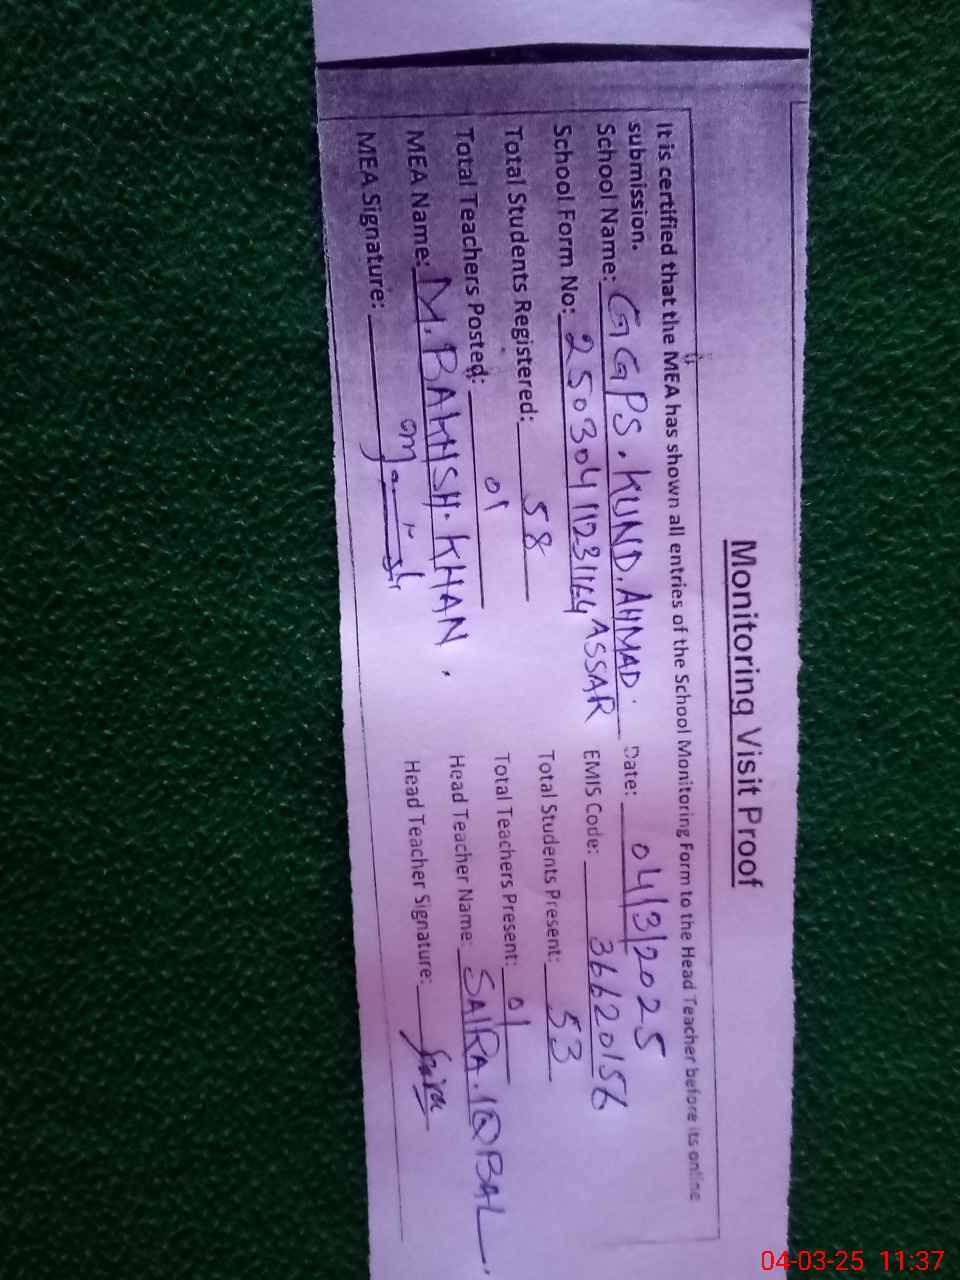 Monitoring Visit Proof
It is certified that the MEA has shown all entries of the School Monitoring Form to the Head Teacher before its online
submission.
School Name: GGPS. KUND. AHMAD. Date: 04/3/2025
ASSAR
School Form No: 25030411231164 EMIS Code: 36620156
Total Students Registered: 58 Total Students Present: 53
Total Teachers Posted: 01 Total Teachers Present: 01
MEA Name: M. BAKHSH. KHAN. Head Teacher Name: SAIRA. IQBAL.
MEA Signature: Head Teacher Signature: Saira
04-03-25 11:37